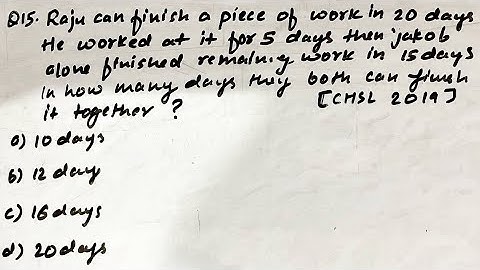 Q15. Raju can finish a piece of work in 20 days
He worked at it for 5 days then jakob
alone finished remaining work in 15 days
In how many days they both can finish
it together ? [CHSL 2019]
a) 10 days
b) 12 day
c) 16 days
d) 20 days